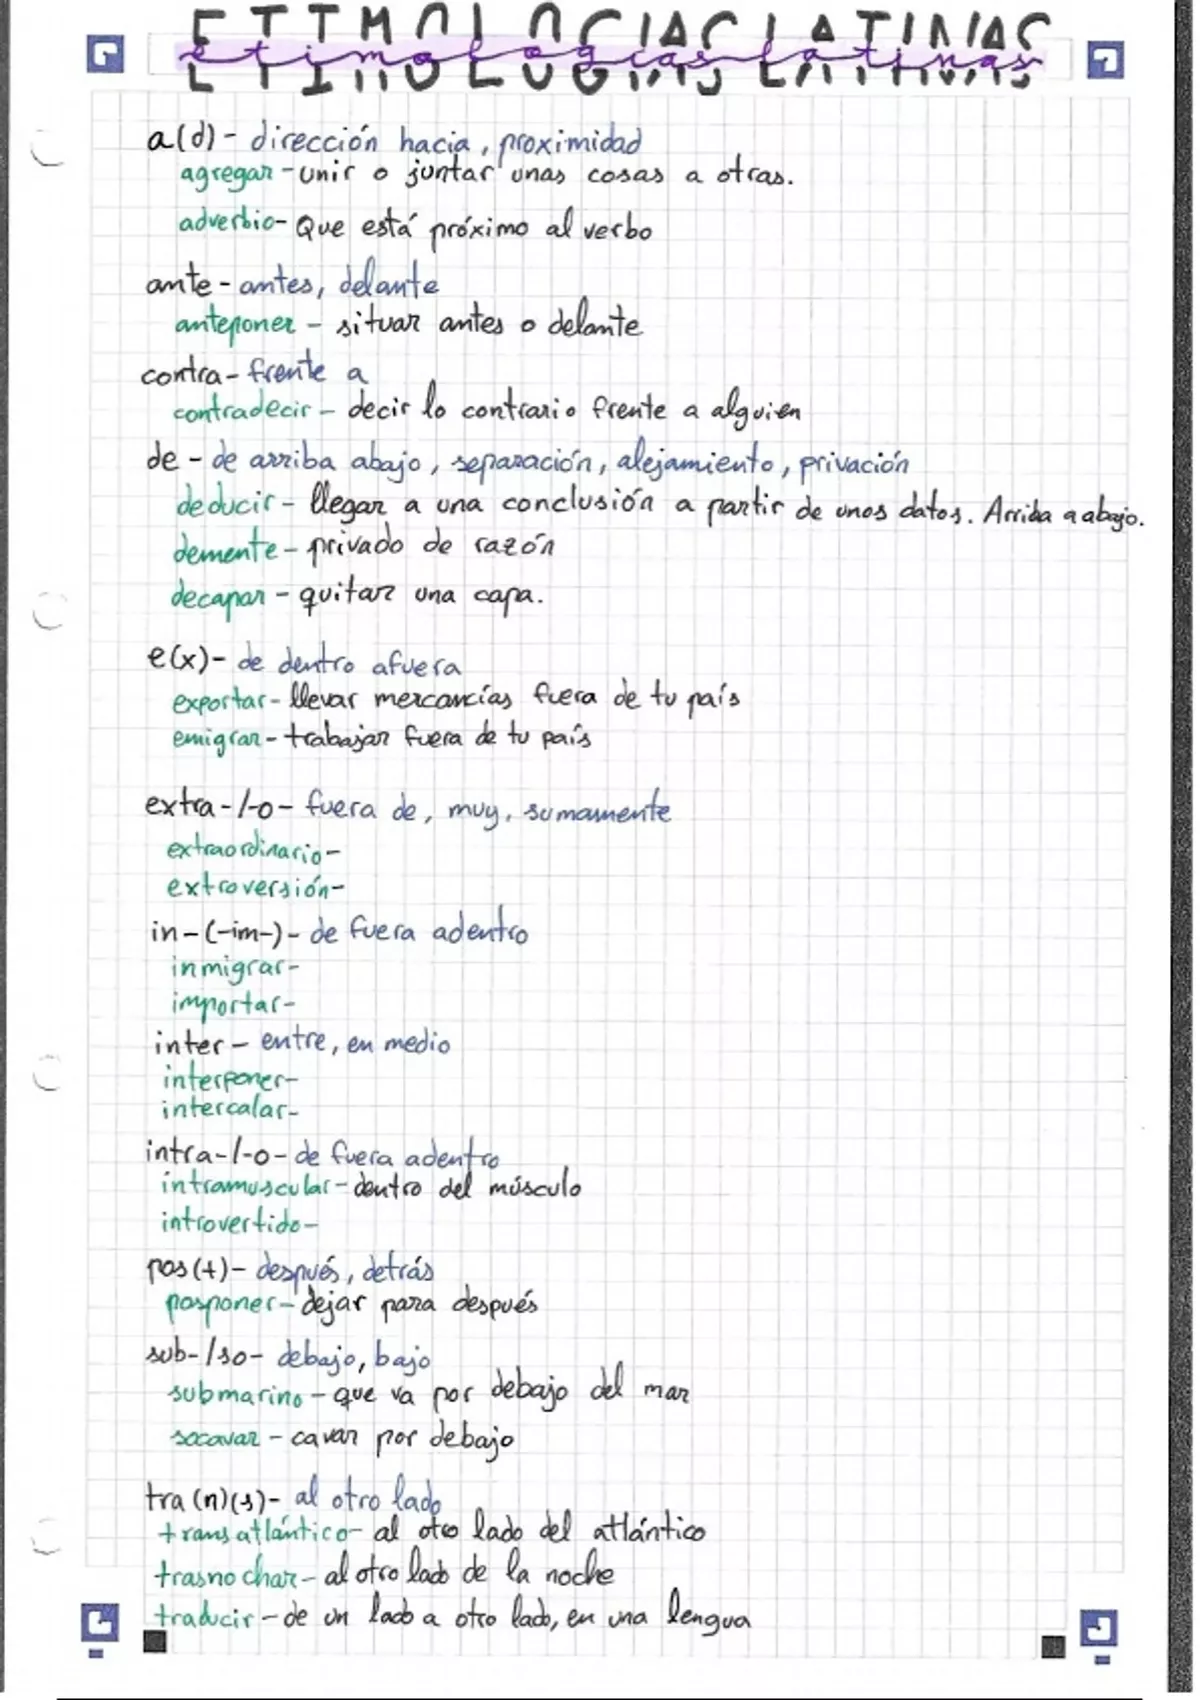 ETIMOLOGIAS LATINAS
etimologias latinas
a(d)- dirección hacia, proximidad
agregar - unir o juntar unas cosas a otras.
adverbio- Que está próximo al verbo
ante - antes, delante
anteponer - situar antes o delante
contra - frente a
contradecir - decir lo contrario frente a alguien
de - de arriba abajo, separación, alejamiento, privación
deducir - llegar a una conclusión a partir de unos datos. Arriba a abajo.
demente - privado de razón
decapar - quitar una capa.
e(x)- de dentro afuera
exportar - llevar mercancías fuera de tu país
emigrar - trabajar fuera de tu país
extra-/-o- fuera de, muy, sumamente
extraordinario-
extroversión-
in-(-im-)- de fuera adentro
inmigrar-
importar-
inter - entre, en medio
interponer-
intercalar-
intra-/-o- de fuera adentro
intramuscular- dentro del músculo
introvertido-
pos(t)- después, detrás
posponer- dejar para después
sub-/so- debajo, bajo
submarino - que va por debajo del mar
socavar - cavar por debajo
tra(n)(s)- al otro lado
transatlántico- al otro lado del atlántico
trasnochar- al otro lado de la noche
traducir - de un lado a otro lado, en una lengua